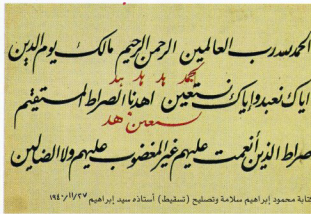 الحمد لله رب العالمين الرحمن الرحيم مالك يوم الدين
نجمد بد بد بد
اياك نعبد واياك نستعين اهدنا الصراط المستقيم
ستعين هد
صراط الذين أنعمت عليهم غير المغضوب عليهم ولا الضالين
كتابة محمود إبراهيم سلامة وتصليح (تسقيط) أستاذه سيد إبراهيم ١٩٤٠/١١/٢٧